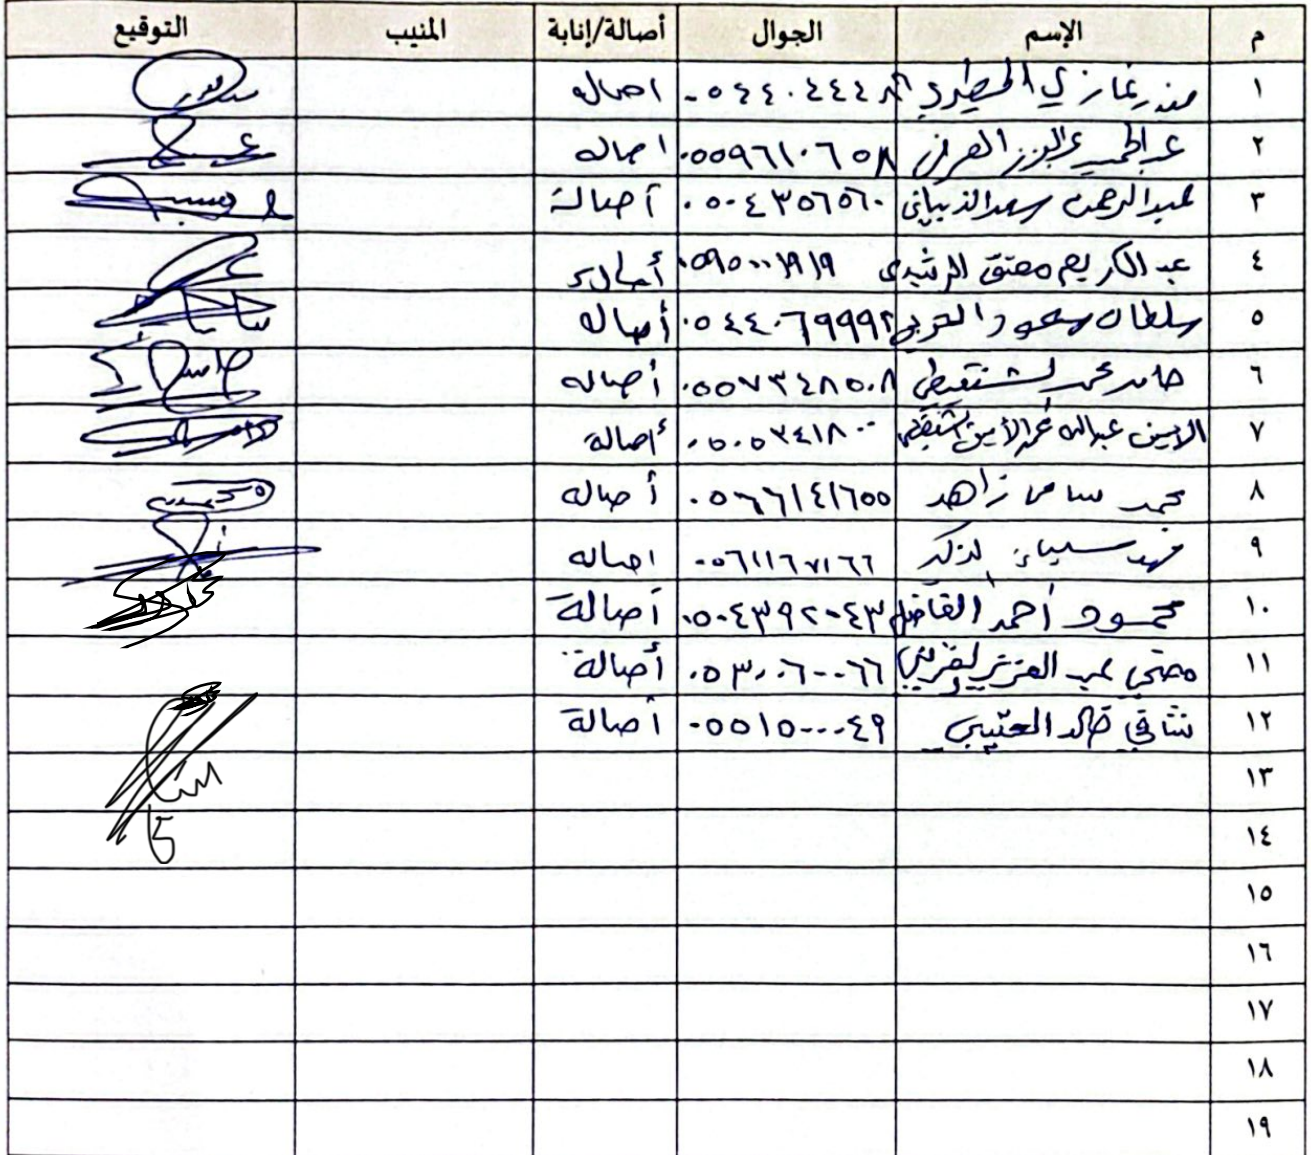 م الإسم الجوال أصالة/إنابة المنيب التوقيع
١ منذر غازي المطيري ٠٥٤٤٠٤٤٤٨٢ اصاله
٢ عبدالحميد عبدالعزيز العرفي ٠٥٥٩٦١٠٦٥٨ اصاله
٣ عبدالرحمن سعد الذبياني ٠٥٠٤٣٥٦٥٦٠ أصالة
٤ عبد الكريم معتق الرشيدي ٠٥٩٥٠٠١٩١٩
٥ سلطان سعود الحربي ٠٥٤٤٠٦٩٩٩٢ أصاله
٦ حامد محمد الشنقيطي ٠٥٥٧٣٤٨٥٠٨ أصاله
٧ الامين عبدالله محمد الأمين الشنقيطي ٠٥٠٥٣٤١٨٠٠ أصالة
٨ محمد سامي زاهد ٠٥٦٦١٤١٦٥٥ أصاله
٩ فهد ٠٥٦١١٦٧١٦٦ اصاله
١٠ محمود أحمد الفاضل ٠٥٠٤٣٩٢٠٤٣ أصالة
١١ عبد العزيز ٠٥٣٠٠٦٠٠٦٦ أصالة
١٢ خالد العتيبي ٠٥٥١٥٠٠٠٤٩ أصالة
١٣
١٤
١٥
١٦
١٧
١٨
١٩